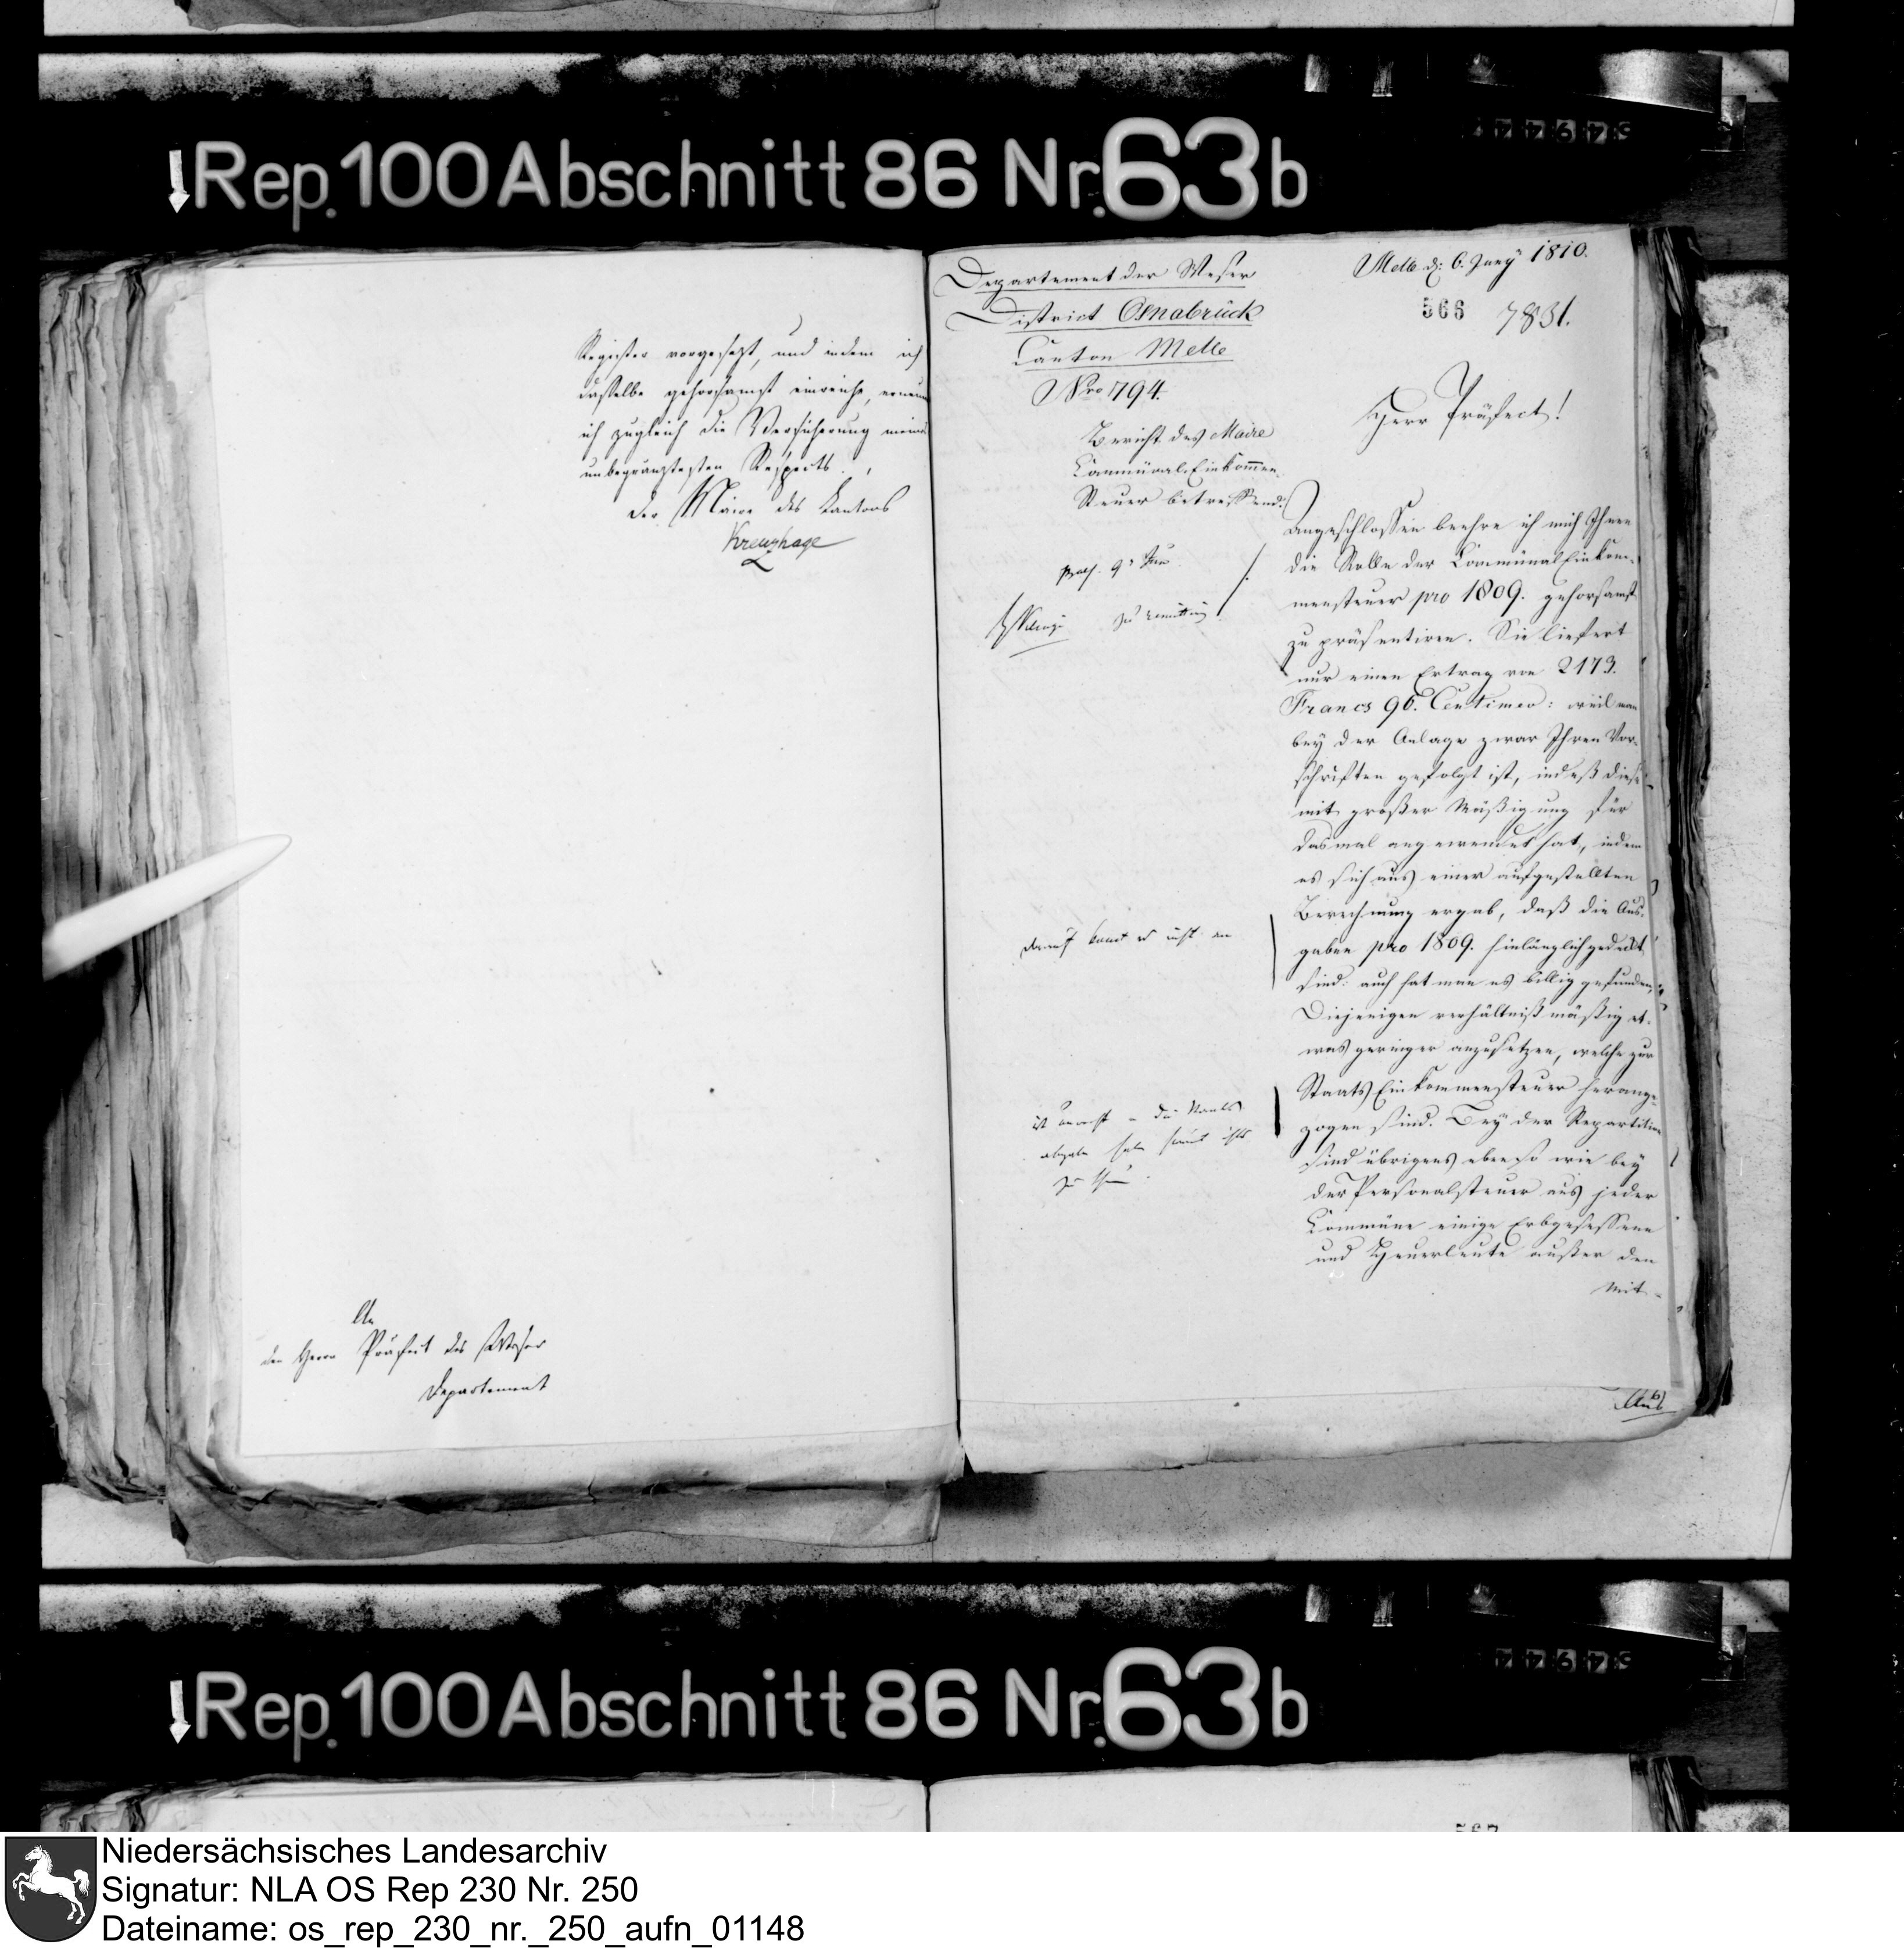 Rep. 100 Abschnitt 86 Nr. 63b
Register vorgesetzt, und indem ich
dasselbe gehorsamst einreiche, erneure
ich zugleich die Versicherung meines
unbegränztesten Respects.
Der Maire des Kantons
Kreuzhage
An
den Herrn Präfect des Weser
Departement
Departement der Weser
District Osnabrück
Canton Melle
Nro 794.
Bericht des Maire
Communal-Einkommen-
Steuer betreffend:
Melle d: 6. Juny 1810.
566 7831.
Herr Präfect!
praes. 9t Jun
zu
Angeschlossen beehre ich mich Ihnen
die Rolle der Communal Einkom-
mensteuer pro 1809. gehorsamst
zu präsentiren. Sie liefert
nur einen Ertrag von 2173.
Francs 96. Centimen: weil man
bey der Anlage zwar Ihren Vor-
schriften gefolgt ist, indeß diese
mit großer Mäßigung für
dasmal angewendet hat, indem
es sich aus einer aufgestellten
Berechnung ergab, daß die Aus-
gaben pro 1809. hinlänglich gedeckt
sind: auch hat man es billig gefunden,
Diejenigen verhältnißmäßig et-
was geringer anzusetzen, welche zur
Staats Einkommensteuer herange-
zogen sind. Bey der Repartition
sind übrigens ebenso wie bey
der Personalsteuer aus jeder
Commüne einige Erbgesessene
und Heuerleute außer den
Mit-
darauf kommt es nicht an
ist unrecht - die Staats
abgabe
zu thun.
Rep. 100 Abschnitt 86 Nr. 63b
567
Niedersächsisches Landesarchiv
Signatur: NLA OS Rep 230 Nr. 250
Dateiname: os_rep_230_nr._250_aufn_01148